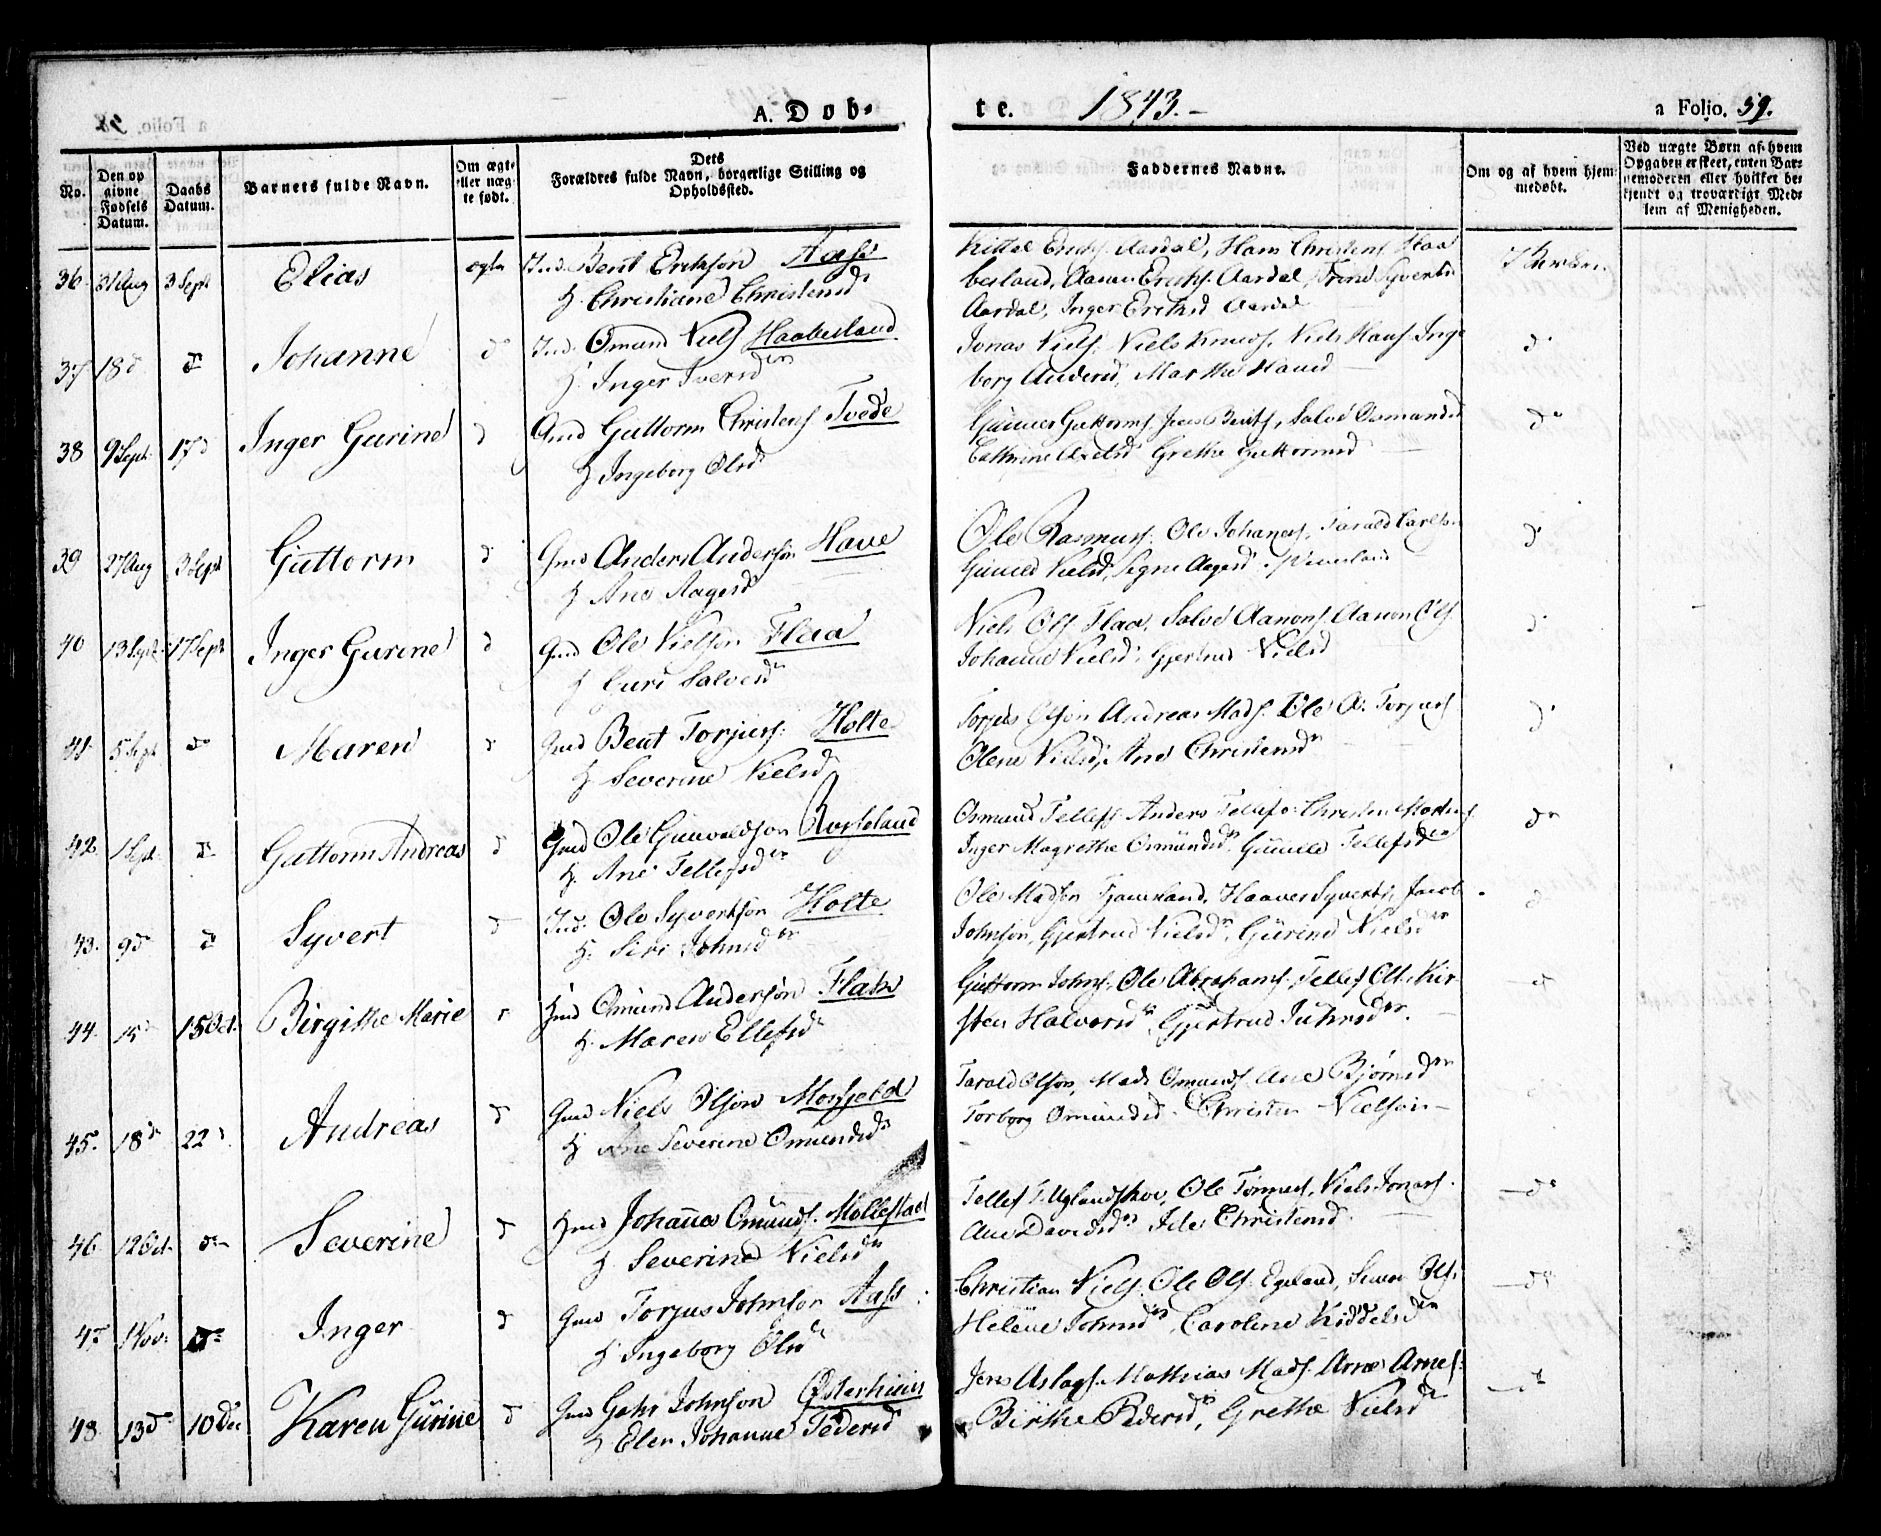 A. Døb-
te. 1843.-
a Folio. 59.
No.
Den opgivne Fødsels Datum.
Daabs Datum.
Barnets fulde Navn.
Om ægte eller uægte født.
Dets Forældres fulde Navn, borgerlige Stilling og Opholdssted.
Faddernes Navne.
Om og af hvem hjemmedøbt.
Ved uægte Børn af hvem Opgaven er skeet, enten Barnemoderen eller hvilket bekjendt og troværdigt Medlem af Menigheden.
36. 31 Aug 3 Sept Elias ægte Ind. Bent Erikson Aass
H. Christiane Christensd
Aardal, Hans Christens Haa
besland, Aanon Erichs. Aardal
Aardal, Inger Eriksd Aardal
37 18 d d Johanne d Ind. Omund Niels Haabesland
H. Inger Iversd
Jonas Niels. Niels Knuds. Niels Hans. Inge
borg Andersd, Marthe Hansd
38 9 Sept. 17 d Inger Gurine d Gmd Guttorm Christens Tvede
H Ingeborg Olsd
Gunner Guttorms. Jens Bents, Salve Osmunds
Cathrine Grethe Guttormsd
39 27 Aug 3 Sept Guttorm d Gmd Anders Anderson Have
H Ane Aagesd
Ole Rasmus. Ole Johanes. Tarald Carls
Gunild Nielsd, Signe Aagesd
40 13 Sept. 17 Sept Inger Gurine d Gmd Ole Nielson Flaa
H Guri Salvesd
Niels Ols Flaa, Salve Aanons. Aanon Ols
Johanne Nielsd, Gjertrud Nielsd
41. 5 Sept do Maren d Gmd Bent Torjus. Holte
H. Severine Nielsd
Torjus Olson Andreas Mads. Ole A. Torjus
Olene Nielsd, Ane Christensd
42 1 Sept. d Guttorm Andreas d Gmd Ole Gunvaldson
H. Ane Tellefsd
Osmund Tellefs. Anders Tellefs. Christen Mortens
Inger Magrethe Osmundsd. Gunild Tellefsd
43. 9 d d Syvert d Ind. Ole Syvertson Holte
H. Siri Johnsd
Ole Madson Haaver Syverts, Jacob
Johnson, Gjertrud Nielsd, Gurine Nielsd
44. 15 d 15 Oct. Birgithe Marie Gmd Omund Anderson Flak
H. Maren Ellefsd
Guttorm Johns, Ole Abrahams. Tellef Ols. Kir
sten Halvorsd, Gjertrud Juhnsd
45. 18 d 22 d Andreas d Gmd Niels Olson Mosfjeld
H Ane Severine Omundsd
Tarald Olson, Mads Omunds. Ane Bjørnsd
Torborg Omundsd. Christen Nielson-
46 12 Oct. d Severine d Gmd Johanes Omunds. Mollestad
H Severine Nielsd
Tellef T. Uglandskov, Ole Tønnes, Niels Jonas.
Ane Davidsd Ide Christensd.
47 1 Nov. d Inger d Gmd Torjus Johnson Aass.
H Ingeborg Olsd
Christian Niels. Ole Ols. Egeland,
Helene Johnsd, Caroline Kiddelsd
48. 13 d 10 Dec Karen Gurine d Gmd Gahr Johnson Østerhuus
H Elen Johanne Pedersd
Jens Aslags. Mathias Mads. Arne Arnes.
Birthe Pedersd, Grethe Nielsd